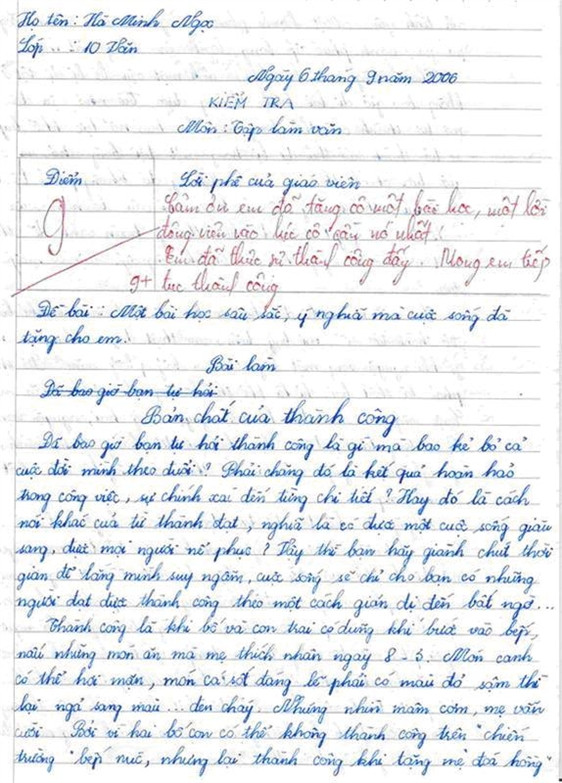 Họ tên: Hà Minh Ngọc
Lớp: 10 Văn
Ngày 6 tháng 9 năm 2006
KIỂM TRA
Môn: Tập làm văn
Điểm
Lời phê của giáo viên
9
Cảm ơn em đã tặng cô một bài học, một lời
động viên vào lúc cô cần nó nhất!
Em đã thực sự thành công đấy. Mong em tiếp
9+ tục thành công
Đề bài: Một bài học sâu sắc, ý nghĩa mà cuộc sống đã
tặng cho em.
Bài làm
Đã bao giờ bạn tự hỏi
Bản chất của thành công
Đã bao giờ bạn tự hỏi thành công là gì mà bao kẻ bỏ cả
cuộc đời mình theo đuổi? Phải chăng đó là kết quả hoàn hảo
trong công việc, sự chính xác đến từng chi tiết? Hay đó là cách
nói khác của từ thành đạt, nghĩa là có được một cuộc sống giàu
sang, được mọi người nể phục? Vậy thì bạn hãy giành chút thời
gian để lặng mình suy ngẫm, cuộc sống sẽ chỉ cho bạn có những
người đạt được thành công theo một cách giản dị đến bất ngờ...
Thành công là khi bố và con trai có dũng khí bước vào bếp,
nấu những món ăn mà mẹ thích nhân ngày 8-3. Món canh
có thể hơi mặn, món cá sốt đáng lẽ phải có màu đỏ sậm thì
lại ngả sang màu... đen cháy. Nhưng nhìn mâm cơm, mẹ vẫn
cười. Bởi vì hai bố con có thể không thành công trên "chiến
trường" bếp núc, nhưng lại thành công khi tặng mẹ "đoá hồng"